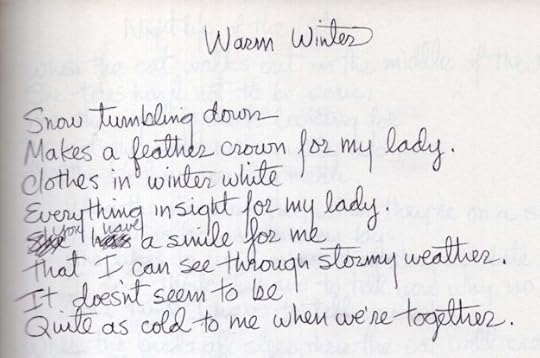 Warm Winter
Snow tumbling down
Makes a feather crown for my lady.
Clothes in winter white
Everything in sight for my lady.
You have a smile for me
That I can see through stormy weather.
It doesn't seem to be
Quite as cold to me when we're together.